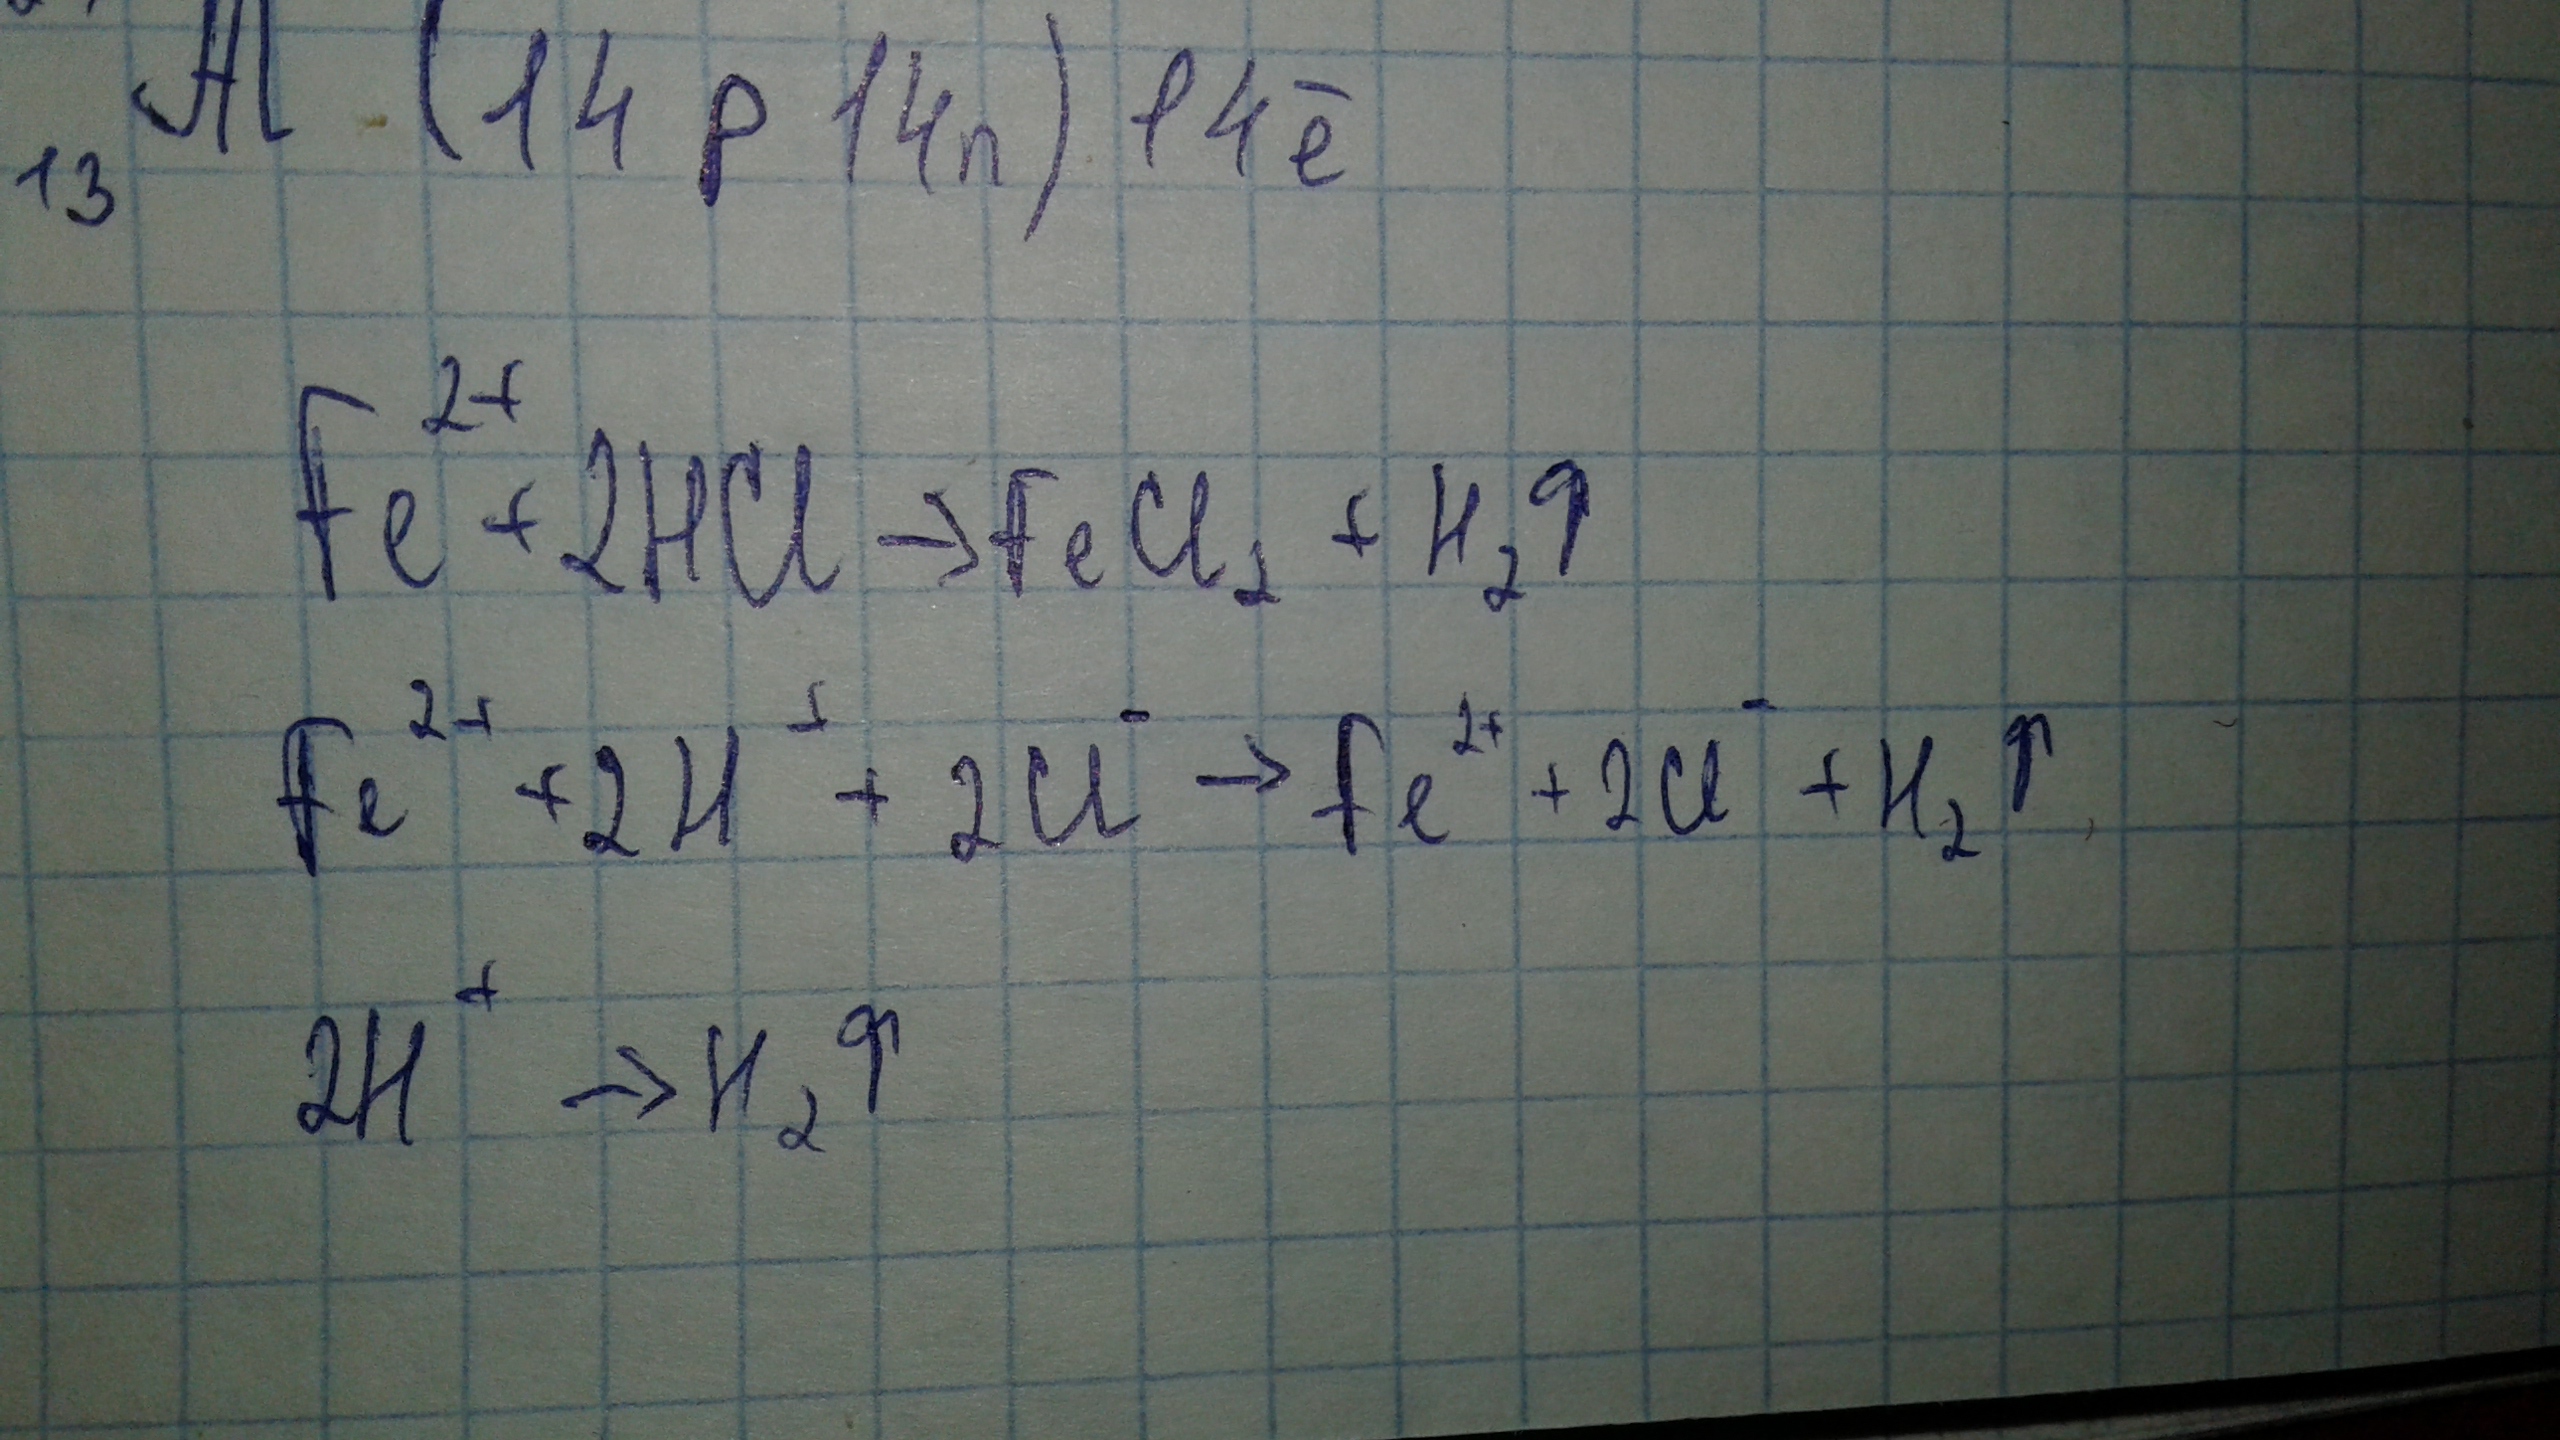 ₁₃Al (14 p 14n) 14ē
Fe²⁺ + 2HCl → FeCl₂ + H₂↑
Fe²⁺ + 2H⁺ + 2Cl⁻ → Fe²⁺ + 2Cl⁻ + H₂↑
2H⁺ → H₂↑